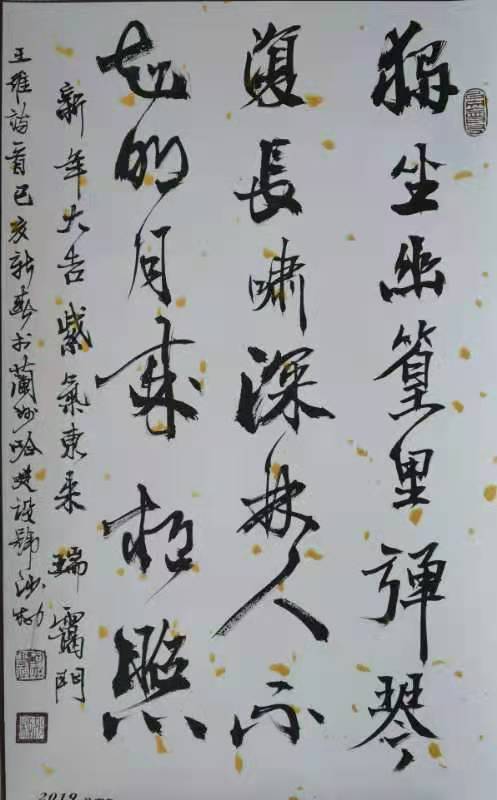 獨坐幽篁里彈琴
復長嘯深林人不
知明月來相照
新年大吉紫氣東來 瑞靄門
王維詩一首己亥新春於蘭州
2019